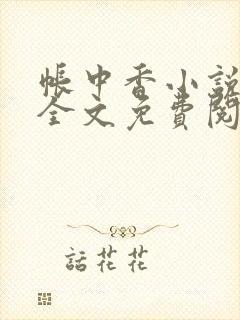 帳中香小說
全文免費閱
話花花